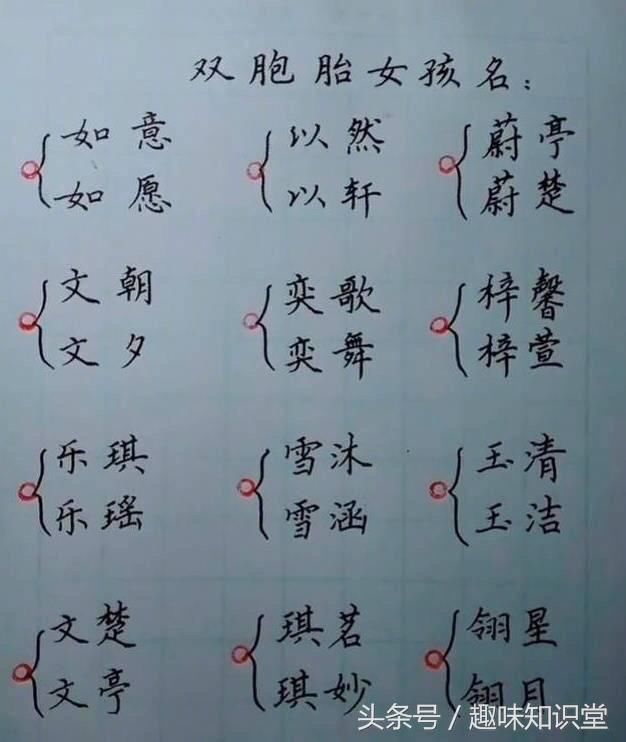 双胞胎女孩名：
如意 以然 蔚亭
如愿 以轩 蔚楚
文朝 奕歌 梓馨
文夕 奕舞 梓萱
乐琪 雪沐 玉清
乐瑶 雪涵 玉洁
文楚 琪茗 翎星
文亭 琪妙 翎月
头条号 / 趣味知识堂